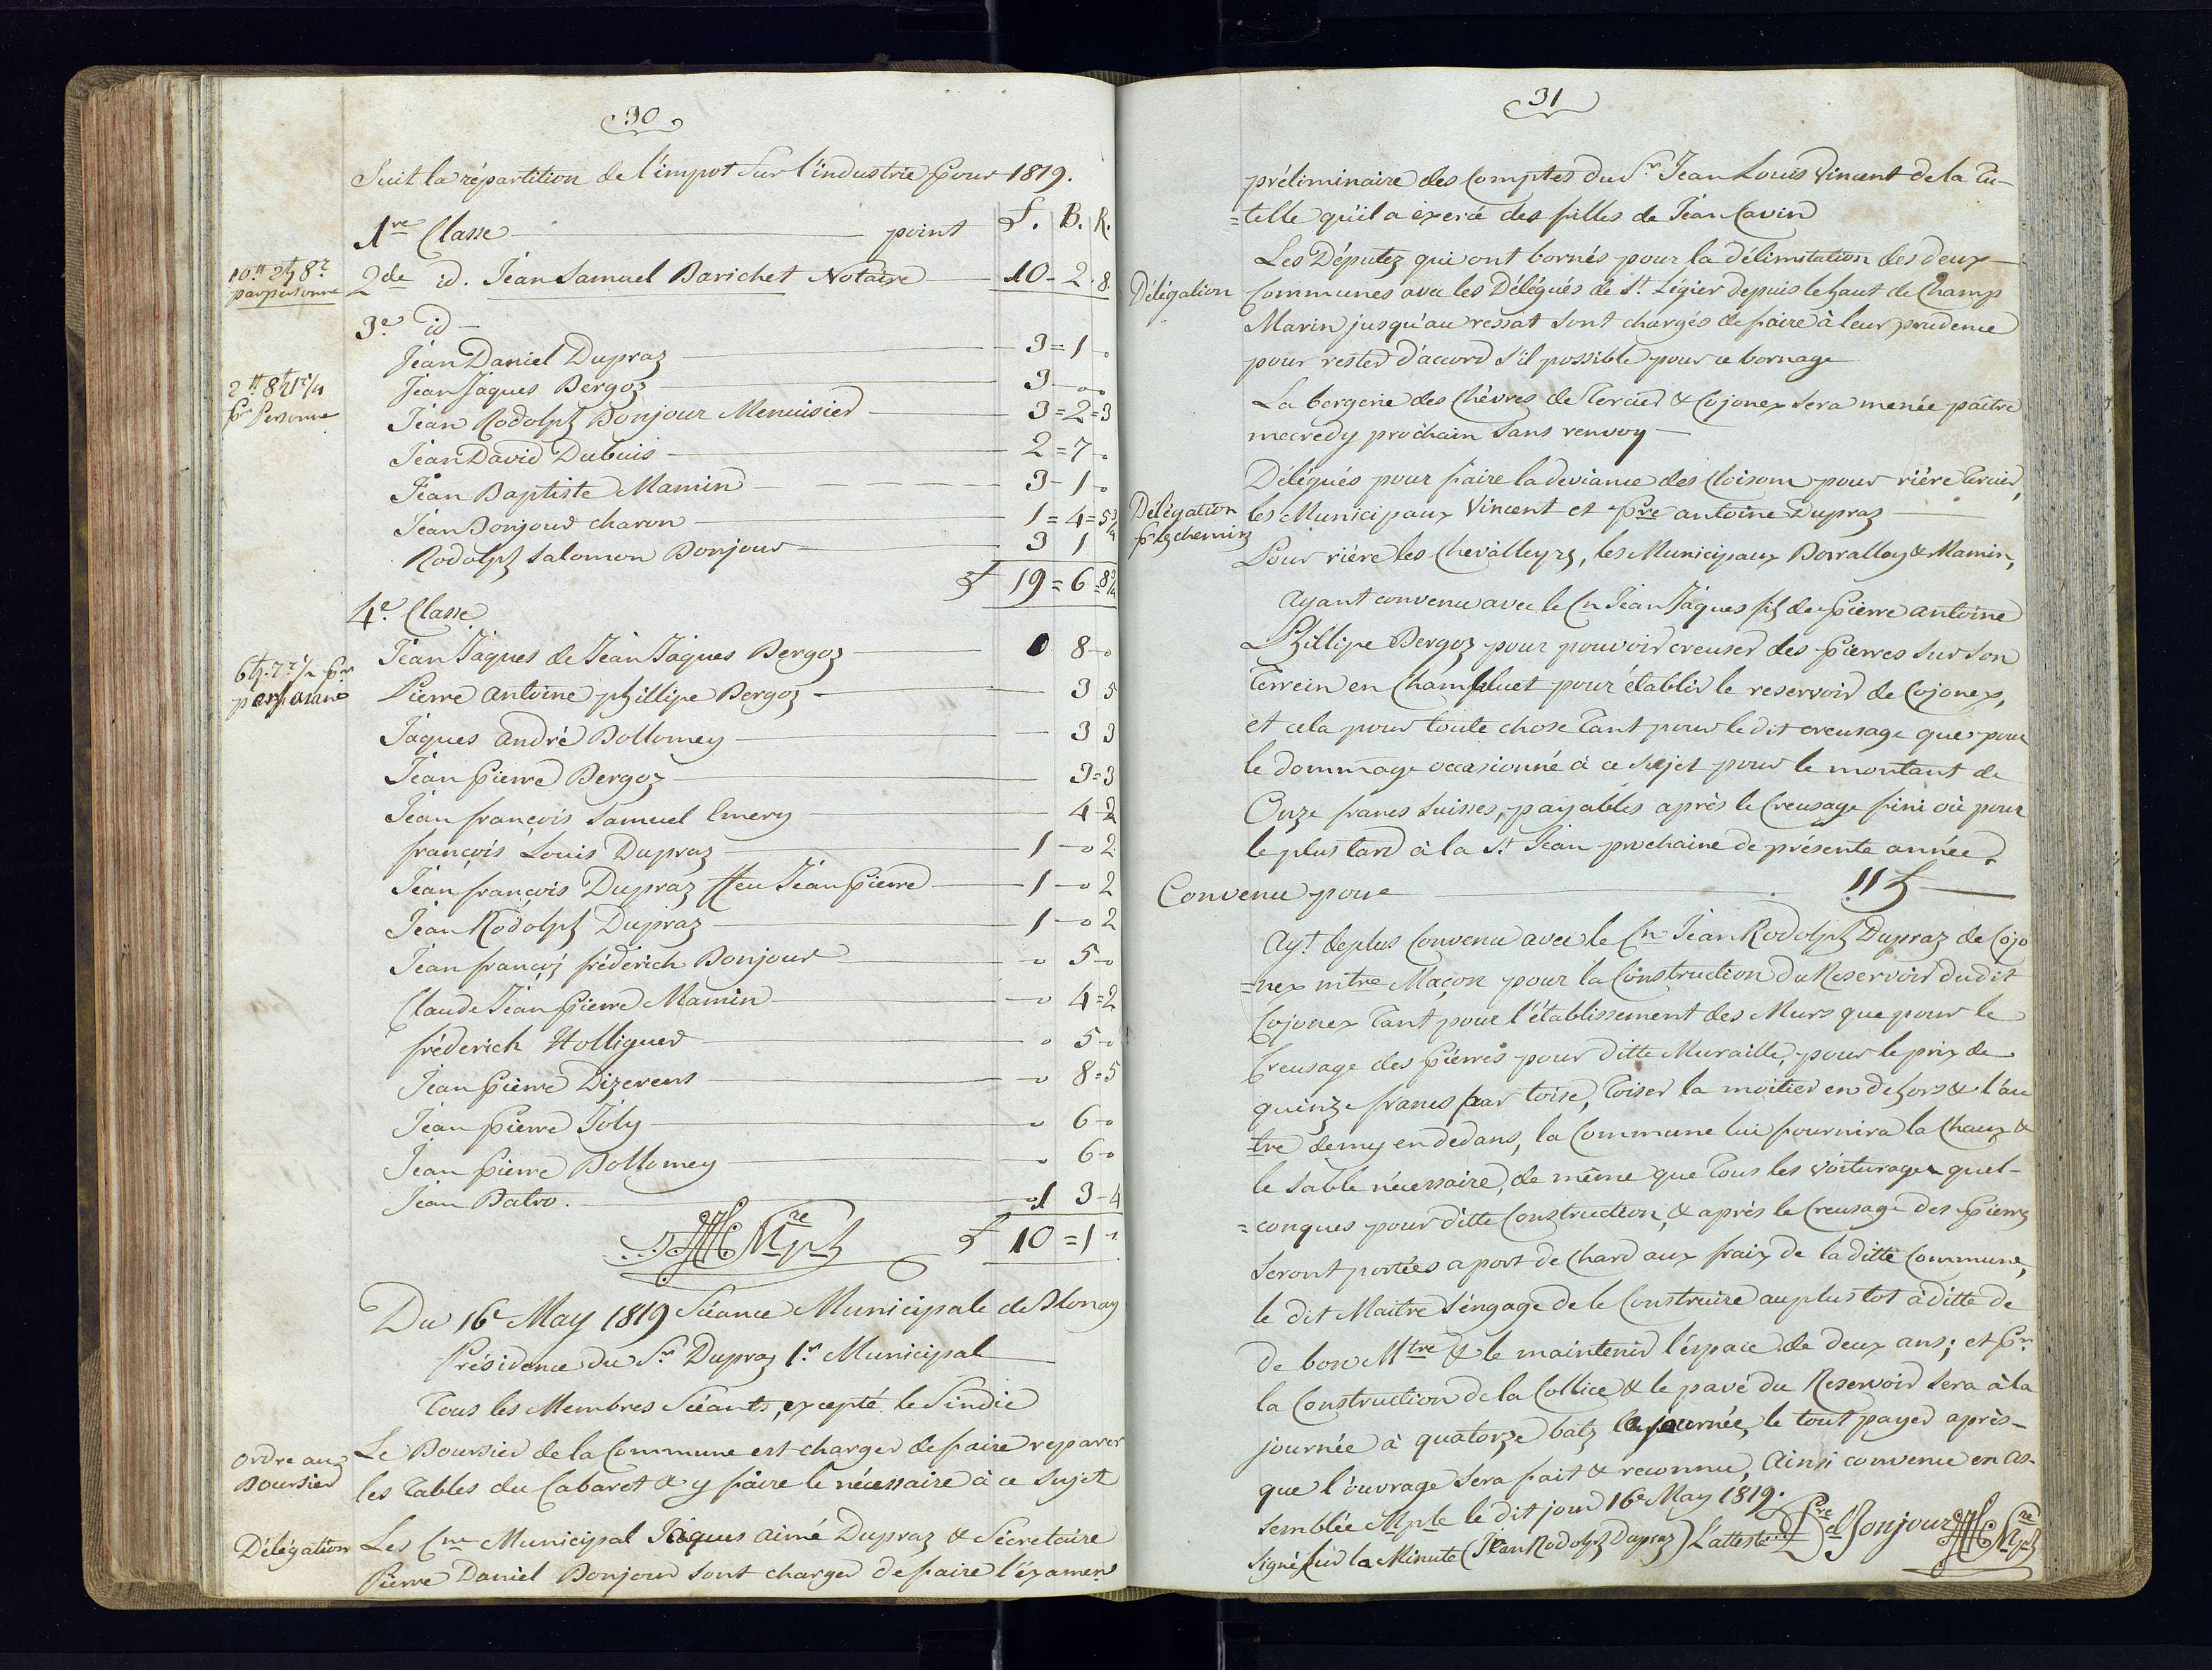 30
Suit la répartition de l'impot Sur l'industrie pour 1819.
£. B. R.
1re Classe point
2de id. Jean Samuel Barichet Notaire 10 - 2 - 8
par personne
3e id
Jean Daniel Dupraz 3 = 1 - 0
Jean Jaques Bergoz 3 - 0 0
pr Personne
Jean Rodolph Bonjour Menuisier 3 = 2 = 3
Jean David Dubuis 2 = 7 - 0
Jean Baptiste Mamin 3 - 1 - 0
Jean Bonjour charon 1 = 4 = 5 3/4
Rodolph Salomon Bonjour 3 1
£ 19 = 6 = 8 3/4
4e Classe
Jean Jaques de Jean Jaques Bergoz 0 8 - 0
Pierre antoine phillipe Bergoz 3 5
personne
Jaques andré Bollomey 3 3
Jean pierre Bergoz 3 = 3
Jean françois Samuel Emery 4 - 2
françois Louis Dupraz 1 - 0 2
Jean françois Dupraz ffeu Jean pierre 1 - 0 2
Jean Rodolph Dupraz 1 - 0 2
Jean françois fréderich Bonjour 0 5 - 0
Claude Jean pierre Mamin 0 4 = 2
fréderich Holliguer 0 5 - 0
Jean pierre Dizerens 0 8 = 5
Jean pierre Joly 0 6 - 0
Jean pierre Bollomey 0 6 - 0
Jean Balvo. 1 3 - 4
£ 10 = 1
Du 16e May 1819 Séance Municipale de Blonay
Présidence du Sr Dupraz 1r Municipal
Tous les Membres Séants, excepté le Sindic
ordre au Boursier
Le Boursier de la Commune est charger de faire reparer
les Tables du Cabaret & y faire le nécessaire à ce sujet
Délégation
Les Cns Municipal Jaques aimé Dupraz & Sécretaire
Pierre Daniel Bonjour sont charger de faire l'éxamen
31
préliminaire des Comptes du Sr Jean Louis Vincent de la Tu-
=telle qu'il a éxercé des filles de Jean Cavin
Délégation
Les Députez qui ont bornés pour la délimitation des deux
Communes avec les Délégués de St Légier depuis le haut de Champ
Marin jusqu'au ressat sont chargés de faire à leur prudence
pour rester d'accord s'il possible pour ce bornage
La bergerie des Chèvres de Tercier & Cojonex sera menée paître
mecredy prochain sans renvoy
Délégation pr les chemins
Délégués pour faire la deviance des Cloisons pour riére Tercier,
les Municipaux Vincent et Pre antoine Dupraz
Pour riére les Chevalleyrs, les Municipaux Borralley & Mamin,
Ayant convenu avec le Cn Jean Jaques fs de pierre antoine
Phillipe Bergoz pour pouvoir creuser des pierres sur son
Terrein en Champluet pour établir le reservoir de Cojonex,
et cela pour toute chose Tant pour le dit creusage que pour
le dommage occasionné à ce sujet pour le montant de
Onze francs Suisses, payables après le Creusage fini où pour
le plus tard à la St Jean prochaine de présente année.
Convenu pour 11
Ayt. de plus Convenu avec le Cn Jean Rodolph Dupraz de Cojo
=nex mtre Maçon pour la Construction du Reservoir du dit
Cojonex Tant pour l'établissement des Murs que pour le
Creusage des pierres pour ditte Muraille, pour le prix de
quinze francs par toise, Toiser la moitier en dehors & l'au
tre demy en dedans, la Commune lui fournira la Chaux &
le sable nécessaire, de même que Tous les voiturages quel-
=conques pour ditte Construction, & après le Creusage des pierres
seront portées a port de Chard aux fraix de la ditte Commune,
le dit Maitre s'engage de le Construire au plus tot à ditte de
de bon Mtre & le maintenir l'éspace de deux ans; et pr
la Construction de la Collice & le pavé du Reservoir sera à la
journée à quatorze batz la journée, le tout payer après
que l'ouvrage sera fait & reconnu, Ainsi convenu en as-
semblée Mple le dit jour 16e May 1819.
Signé sur la Minute (Jean Rodolph Dupraz) L'atteste Pre Dl Bonjour